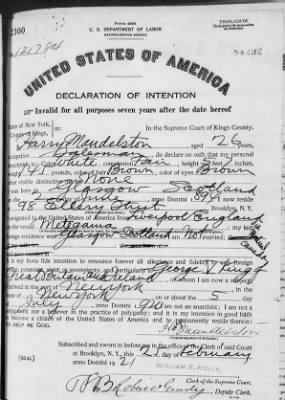 Form 2202
TRIPLICATE
U. S. DEPARTMENT OF LABOR
NATURALIZATION SERVICE
UNITED STATES OF AMERICA
DECLARATION OF INTENTION
Invalid for all purposes seven years after the date hereof
State of New York,
County of Kings,
In the Supreme Court of Kings County.
I, Harry Mendelston, aged 26 years,
occupation Salesman, do declare on oath that my personal
description is: Color White, complexion Fair, height 5 feet 7 inches,
weight 141 pounds, color of hair Brown, color of eyes Brown
other visible distinctive marks None
Glasgow Scotland
anno Domini; I now reside
at 98 Street, Brooklyn, N.Y.
I emigrated to the United States of America from Liverpool England
on the vessel Metagama; my last
foreign residence was Glasgow Scotland Not married;
It is my bona fide intention to renounce forever all allegiance and fidelity to any foreign
prince, potentate, state, or sovereignty, and particularly to George V King of
Great Britain and Ireland of whom I am now a subject;
I arrived at the port of New York, in the
State of New York, on or about the 5 day
of July, anno Domini 1920; I am not an anarchist; I am not a
polygamist nor a believer in the practice of polygamy; and it is my intention in good faith
to become a citizen of the United States of America and to permanently reside therein:
SO HELP ME GOD.
Subscribed and sworn to before me in the office of the Clerk of said Court
at Brooklyn, N. Y., this 21 day of February
anno Domini 1921
[SEAL]
WILLIAM E. KELLY,
Clerk of the Supreme Court.
By, Deputy Clerk.